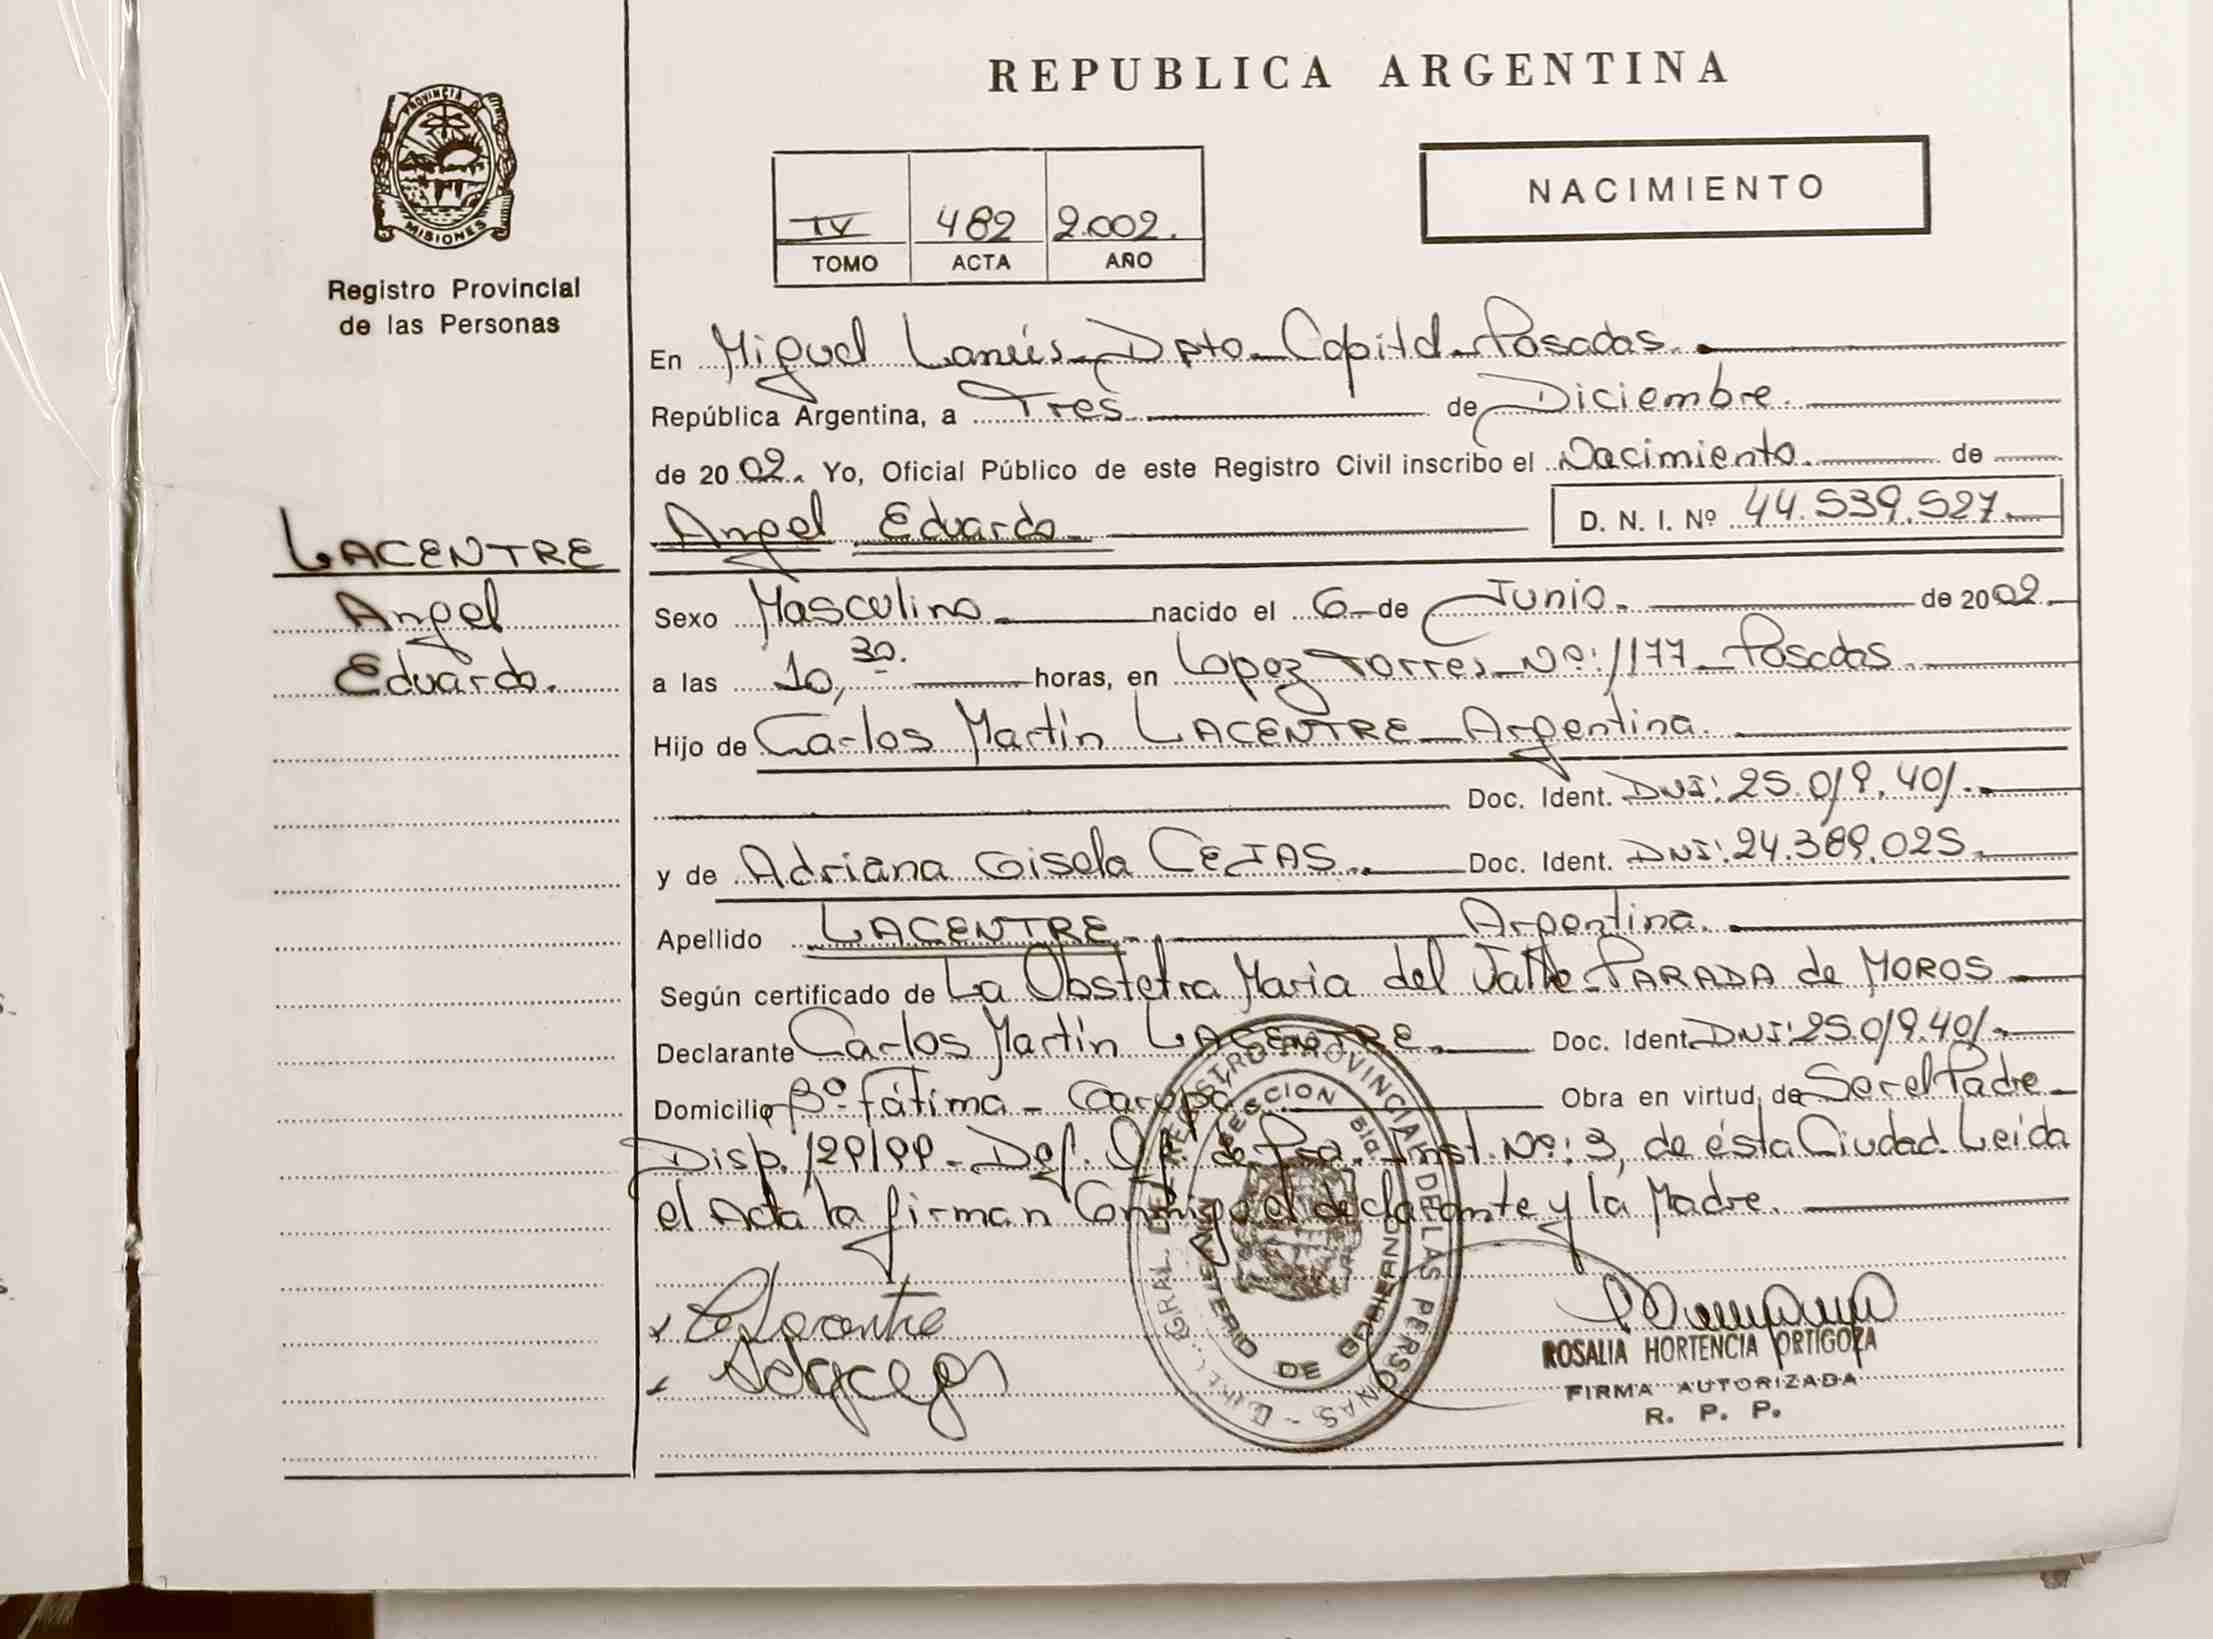 REPUBLICA ARGENTINA
PROVINCIA DE
MISIONES
Registro Provincial
de las Personas
NACIMIENTO
IV 482 2.002.
TOMO ACTA AÑO
En Miguel Lanús - Dpto - Capital - Posadas.
República Argentina, a Tres de Diciembre.
de 20 02. Yo, Oficial Público de este Registro Civil inscribo el Nacimiento. de
Angel Eduardo D. N. I. Nº 44.539.527.
LACENTRE
Angel
Eduardo.
Sexo Masculino nacido el 6 de Junio. de 20 02.
a las 10,30. horas, en Lopez Torres Nº: 1177 - Posadas
Hijo de Carlos Martín LACENTRE - Argentina.
Doc. Ident. DNI: 25.019.401.
y de Adriana Gisela CEJAS. Doc. Ident. DNI: 24.389.025.
Apellido LACENTRE Argentina.
Según certificado de La Obstetra Maria del Valle PARADA de MOROS
Declarante Carlos Martín LACENTRE. Doc. Ident. DNI: 25.019.401.
Domicilio Bº Fátima - Garupá Obra en virtud de Ser el Padre -
Disp. 129/99 - Def. Of. de 1ra. Inst. Nº: 3, de ésta Ciudad. Leida
el Acta la firman Conmigo el declarante y la Madre.
REGISTRO PROVINCIAL DE LAS PERSONAS
DE GOBIERNO
ROSALIA HORTENCIA ORTIGOZA
FIRMA AUTORIZADA
R. P. P.